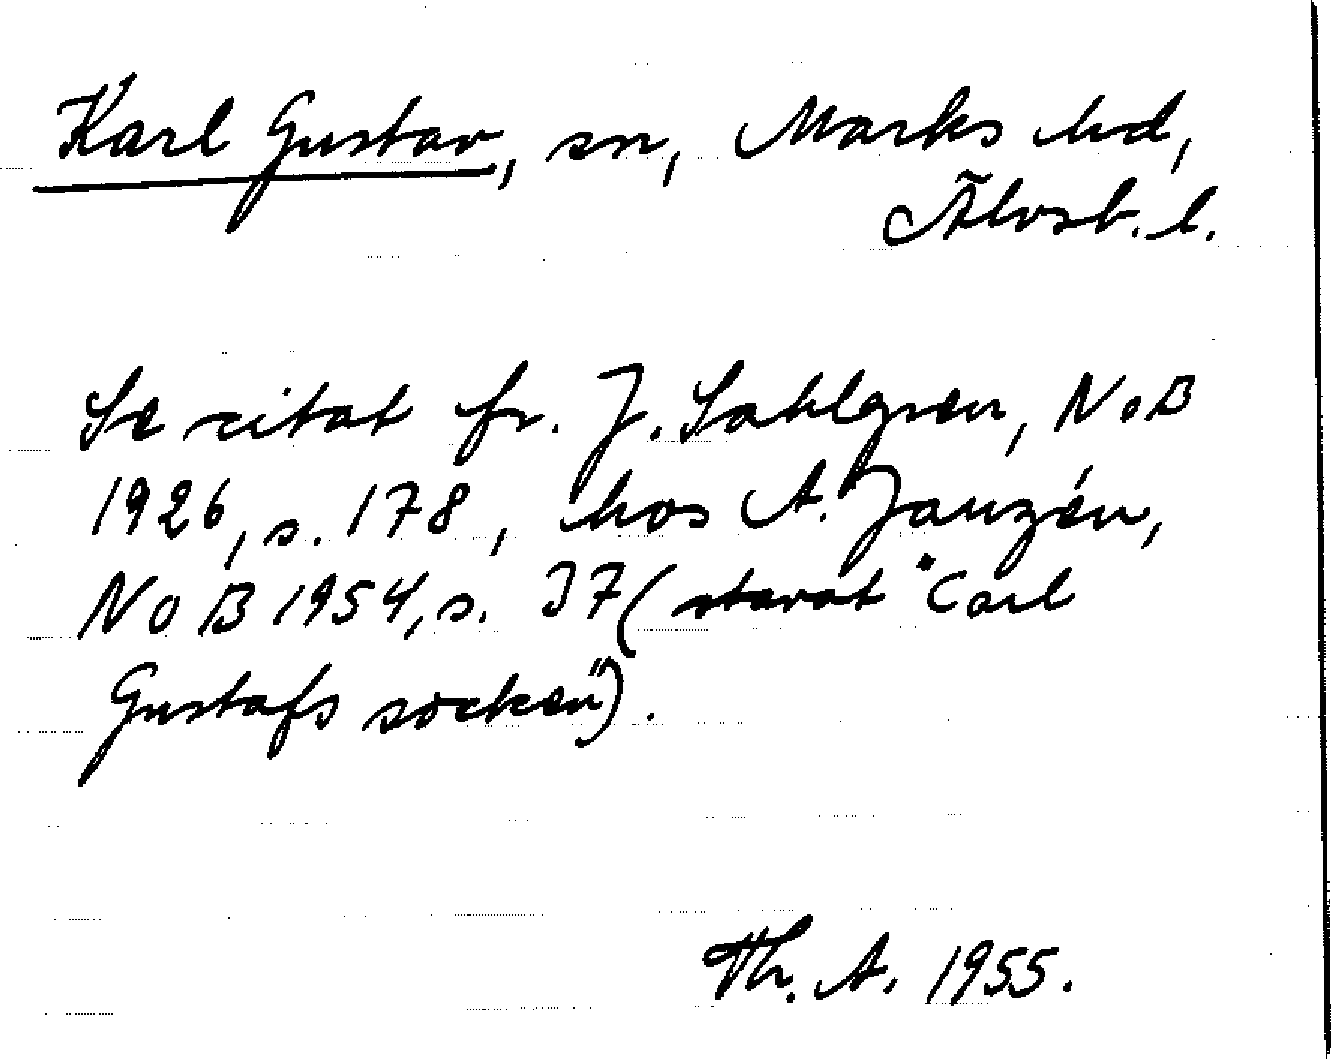 Karl Gustav, sn, Marks hd,
Älvsb. l.
Se citat fr. J. Sahlgren, NoB
1926, s. 178, hos A. Janzén,
NoB 1954, s. 37 (stavat "Carl
Gustafs socken").
Th. A. 1955.